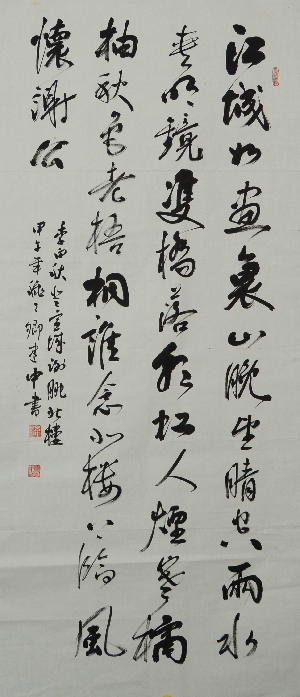 江城如畫裏山晚望晴空兩水
夾明鏡雙橋落彩虹人煙寒橘
柚秋色老梧桐誰念北樓上臨風
懷謝公
李白秋登宣城謝朓北樓
甲午年鄉建中書